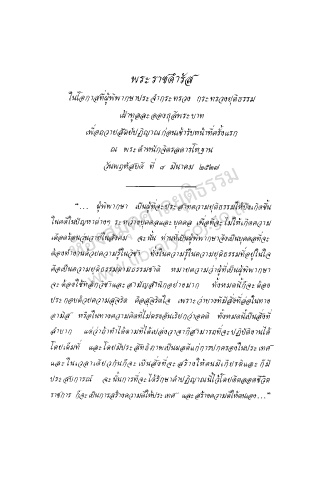 พระราชดำรัส
ในโอกาสที่ผู้พิพากษาประจำกระทรวง กระทรวงยุติธรรม
เฝ้าทูลละอองธุลีพระบาท
เพื่อถวายสัตย์ปฏิญาณก่อนเข้ารับหน้าที่ครั้งแรก
ณ พระตำหนักจิตรลดารโหฐาน
วันพฤหัสบดี ที่ ๘ มีนาคม ๒๕๒๗
“... ผู้พิพากษา เป็นผู้ที่จะประสาทความยุติธรรมให้บังเกิดขึ้น
ในคดีในปัญหาต่างๆ ระหว่างบุคคลและบุคคล เพื่อที่จะไม่ให้เกิดความ
เดือดร้อนวุ่นวายในสังคม ฉะนั้น ท่านที่เป็นผู้พิพากษาจึงเป็นบุคคลที่จะ
ต้องทำงานด้วยความรู้ในวิชา ทั้งในความรู้ในความยุติธรรมที่อยู่ในใจ
คือเป็นความยุติธรรมตามธรรมชาติ หมายความว่าผู้ที่เป็นผู้พิพากษา
จะ ต้องใช้หลักวิชาและสามัญสำนึกอย่างมาก ทั้งหมดนี้ก็จะต้อง
ประกอบด้วยความสุจริต คือสุจริตใจ เพราะว่าบางทีมีสิ่งที่ล่อในทาง
อามิส หรือในทางความคิดที่ไม่ตรงอันเรียกว่าอคติ ทั้งหมดนี้เป็นสิ่งที่
ลำบาก แต่ว่าถ้าทำได้ตามที่ได้เปล่งวาจาก็สามารถที่จะปฏิบัติงานได้
โดยเต็มที่ และโดยมีประสิทธิภาพเป็นผลดีแก่การปกครองในประเทศ
และในเวลาเดียวกันก็จะ เป็นสิ่งที่จะ สร้างให้ตนมีเกียรติและก็มี
ประสบการณ์ ฉะนั้นการที่จะได้รักษาคำปฏิญาณนี้ไว้โดยตลอดชีวิต
ราชการ ก็จะเป็นการสร้างความดีให้ประเทศ และสร้างความดีให้ตนเอง...”